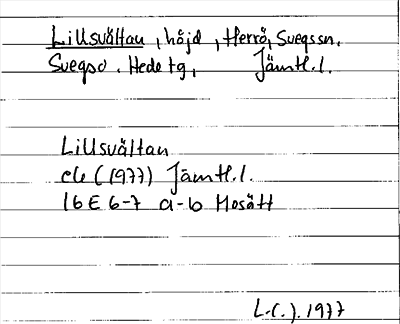 Lillsvåltan, höjd, Herrö, Svegssn.
Svegso. Hede tg, Jämtl.l.
Lillsvåltan
ek (1977) Jämtl.l.
16 E 6-7 a-b Mosätt
L.C.J. 1977